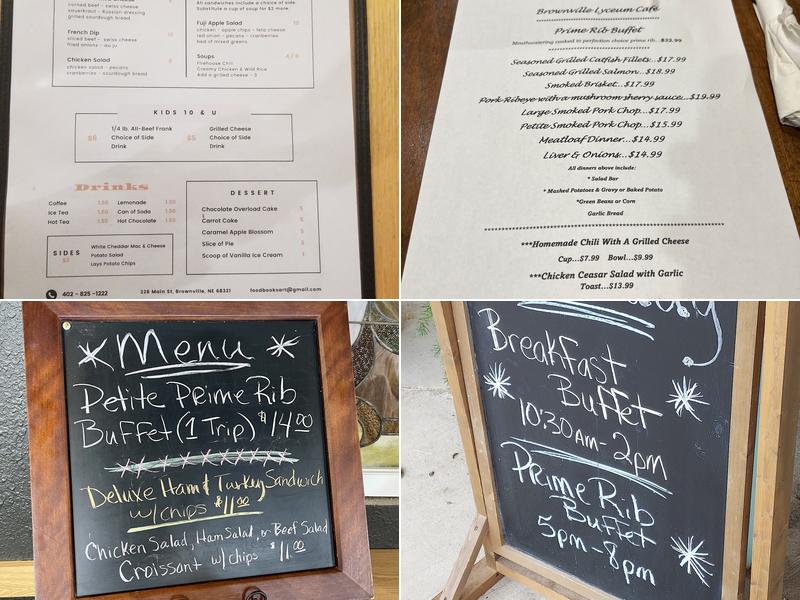 corned beef - swiss cheese
sauerkraut - Russian dressing
grilled sourdough bread
French Dip
sliced beef - swiss cheese
fried onions - au ju
Chicken Salad
chicken salad - pecans
cranberries - sourdough bread
All sandwiches include a choice of side.
Substitute a cup of soup for $2 more.
Fuji Apple Salad 10
chicken - apple chips - feta cheese
red onion - pecans - cranberries
bed of mixed greens
Soups 4/6
Firehouse Chili
Creamy Chicken & Wild Rice
Add a grilled cheese - 3
KIDS 10 & U
$6
1/4 lb. All-Beef Frank
Choice of Side
Drink
$5
Grilled Cheese
Choice of Side
Drink
Drinks
Coffee 1.50
Ice Tea 1.50
Hot Tea 1.50
Lemonade 1.50
Can of Soda 1.50
Hot Chocolate 1.50
SIDES
$2
White Cheddar Mac & Cheese
Potato Salad
Lays Potato Chips
DESSERT
Chocolate Overload Cake 5
Carrot Cake 5
Caramel Apple Blossom 5
Slice of Pie
Scoop of Vanilla Ice Cream 1
402 - 825 - 1222
228 Main St, Brownville, NE 68321
foodbooksart@gmail.com
Brownville Lyceum Café
Prime Rib Buffet
Mouthwatering cooked to perfection choice prime rib...$22.99
Seasoned Grilled Catfish Fillets...$17.99
Seasoned Grilled Salmon...$18.99
Smoked Brisket...$17.99
Pork Ribeye with a mushroom sherry sauce...$19.99
Large Smoked Pork Chop...$17.99
Petite Smoked Pork Chop...$15.99
Meatloaf Dinner...$14.99
Liver & Onions...$14.99
All dinners above include:
* Salad Bar
* Mashed Potatoes & Gravy or Baked Potato
*Green Beans or Corn
Garlic Bread
***Homemade Chili With A Grilled Cheese
Cup...$7.99 Bowl...$9.99
***Chicken Ceasar Salad with Garlic
Toast...$13.99
Menu
Petite Prime Rib
Buffet (1 Trip) $14.00
Deluxe Ham & Turkey Sandwich
w/chips $11.00
Chicken Salad, Ham Salad, or Beef Salad
Croissant w/chips $11.00
Breakfast
Buffet
10:30am - 2pm
Prime Rib
Buffet
5pm - 8pm